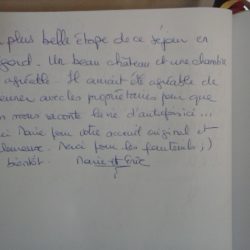 plus belle étape de ce séjour en
gord. Un beau château et une chambre
agréable. Il aurait été agréable de
euner avec les propriétaires pour que
nous raconte la vie d'autrefois ici...
ci Marie pour votre accueil original et
leureux. Merci pour les fauteuils ;)
bientôt. Marie et Eric